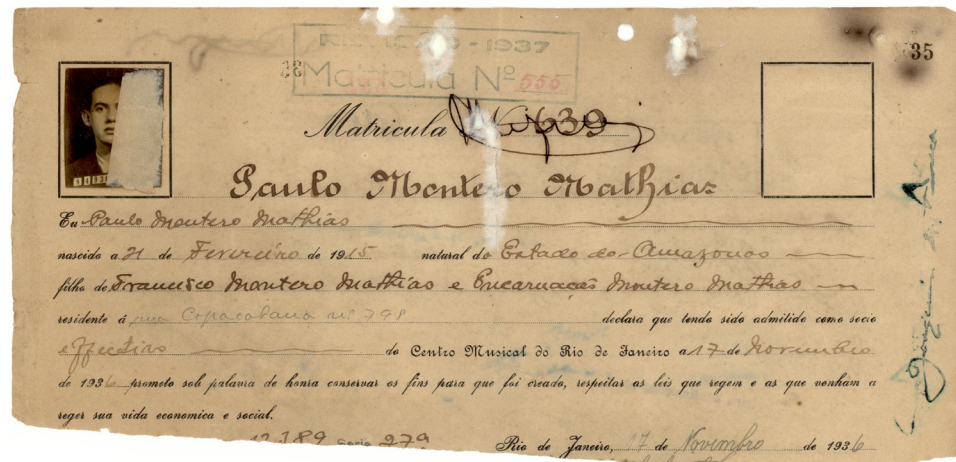 - 1937
35
Matricula Nº 555
Matricula Nº 639
Paulo Montero Mathias
Eu Paulo Montero Mathias
nascido a 21 de Fevereiro de 1915 natural do Estado do Amazonas
filho de Francisco Montero Mathias e Encarnação Montero Mathias
residente á rua Copacabana nº 798 declara que tendo sido admitido como socio
effectivo do Centro Musical do Rio de Janeiro a 17 de Novembro
de 1936 prometo sob palavra de honra conservar os fins para que foi creado, respeitar as leis que regem e as que venham a
reger sua vida economica e social.
Serie 279
Rio de Janeiro, 17 de Novembro de 1936